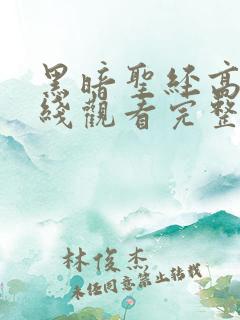 黑暗聖経高
綫觀看完整
林俊杰
未经同意禁止转载